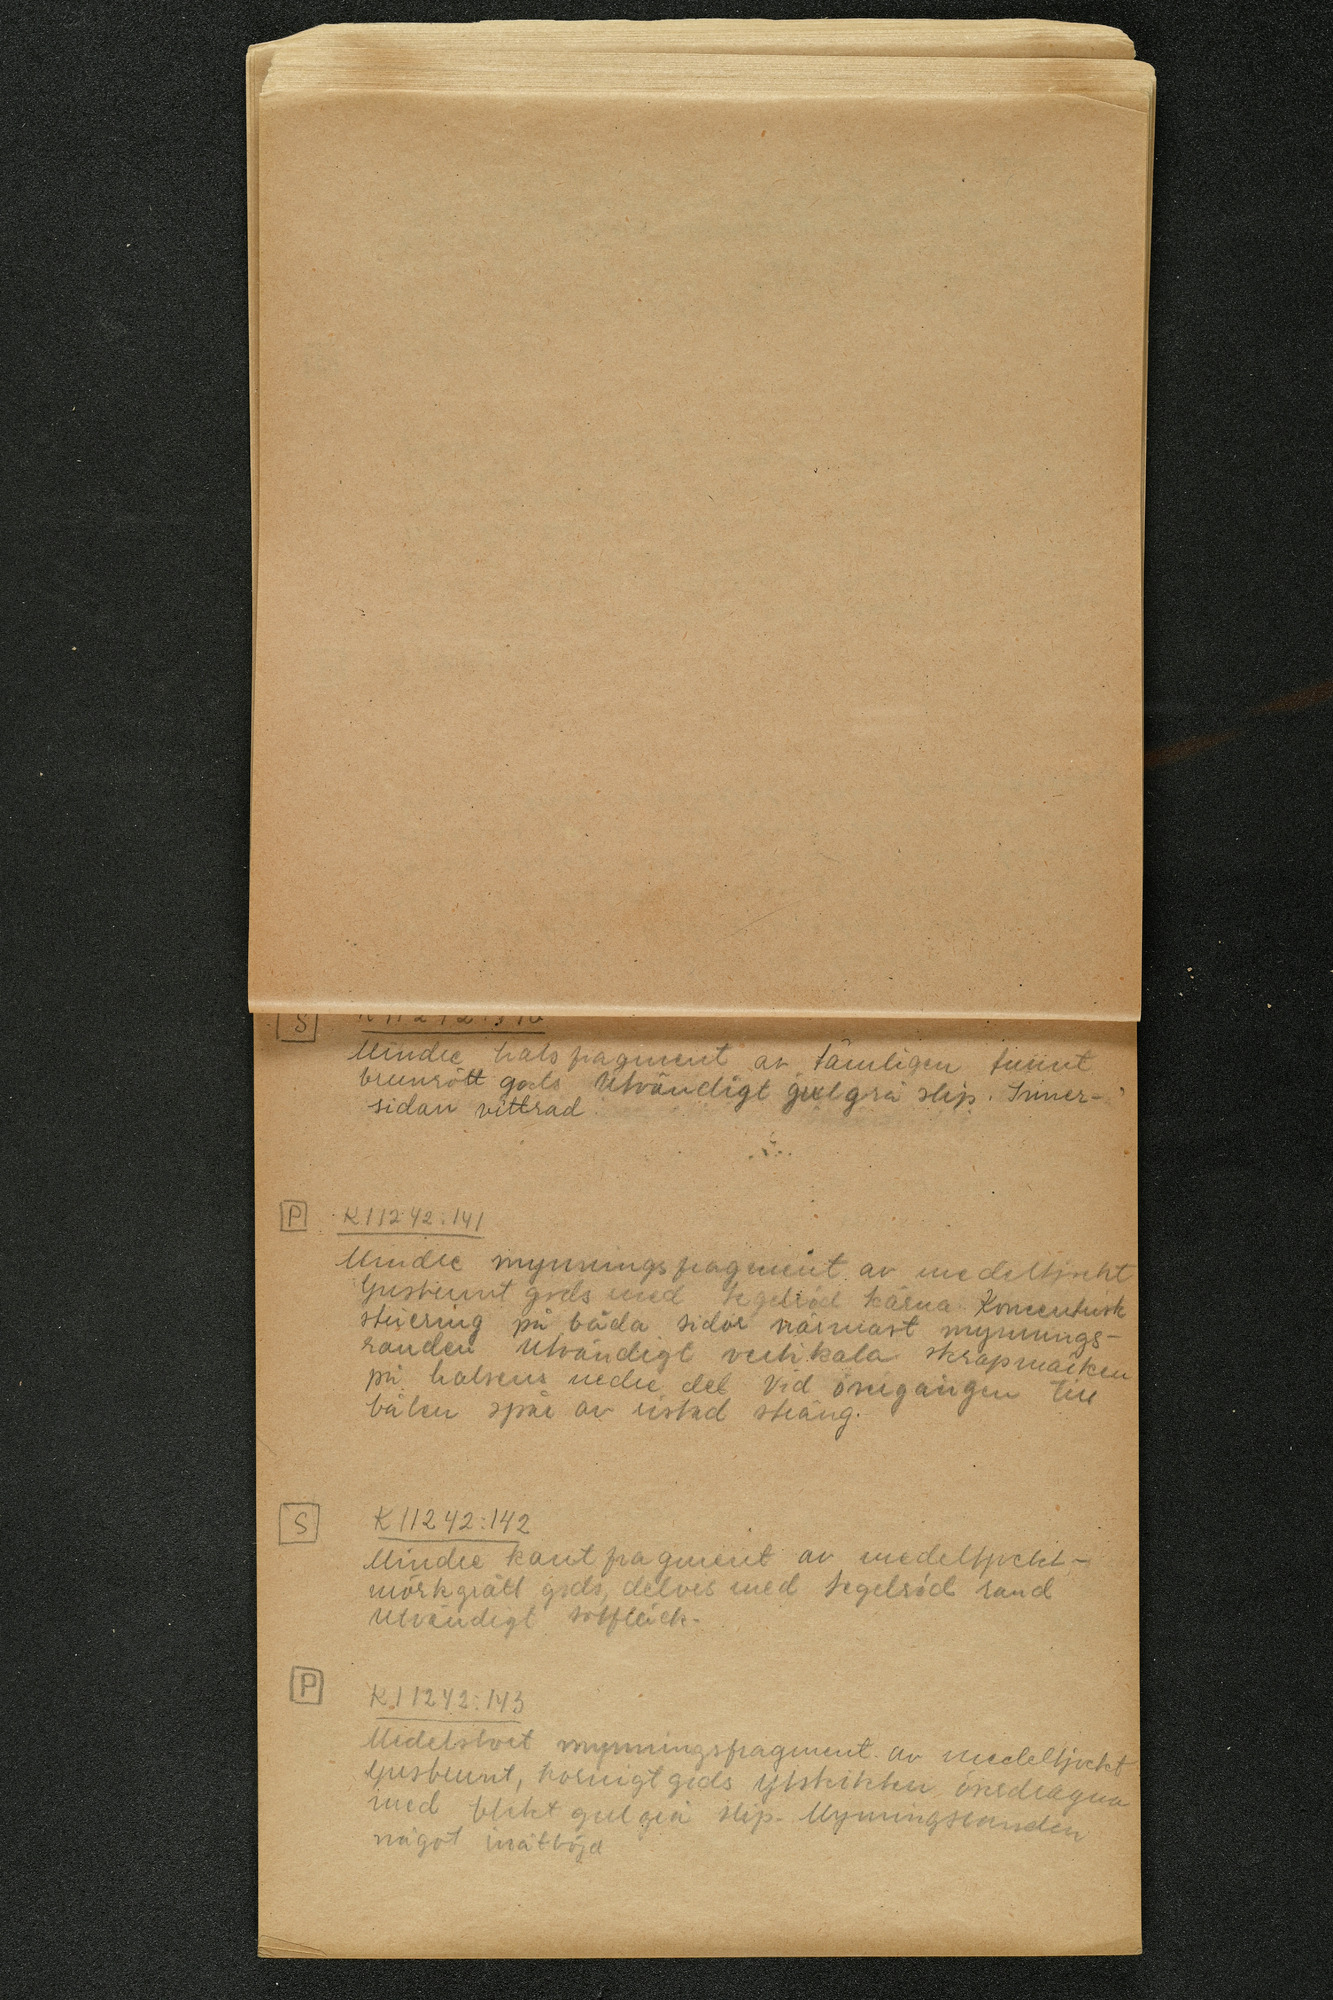 S
Mindre halsfragment av tämligen tunnt
brunrött gods Utvändigt gulgrå slip. Inner-
sidan vittrad.
P K11242:141
Mindre mynningsfragment av medeltjockt
ljusbrunt gods med tegelröd kärna. Koncentrisk
striering på båda sidor närmast mynnings-
randen Utvändigt vertikala skrapmärken
på halsens nedre del Vid övergången till
bålen spår av ristad sträng.
S K11242:142
Mindre kantfragment av medeltjockt-
mörkgrått gods, delvis med tegelröd rand
Utvändigt sotfläck-
P K11242:143
Medelstort mynningsfragment av medeltjockt
ljusbrunt, kornigt gods Ytskikten överdragna
med blekt gulgrå slip- Mynningsranden
något inåtböjd